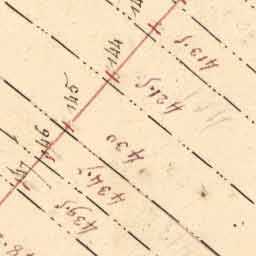 144
145
146
147
413.5
421.5
430
434.5
439.5